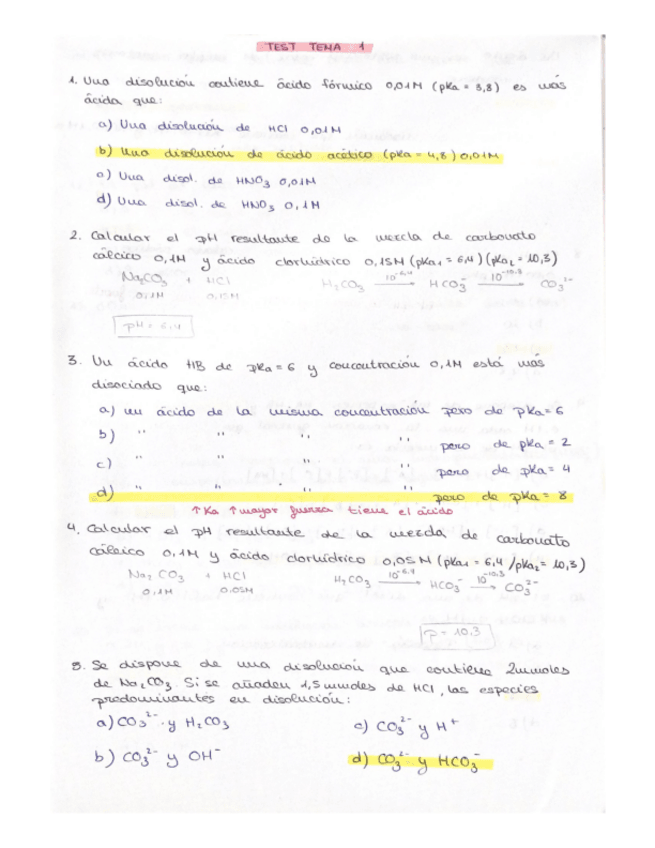 TEST TEMA 1
1. Una disolución contiene ácido fórmico 0,01M (pKa = 3,8) es más
ácida que:
a) Una disolución de HCl 0,01M
b) Una disolución de ácido acético (pKa = 4,8) 0,01M
c) Una disol. de HNO3 0,01M
d) Una disol. de HNO3 0,1M
2. Calcular el pH resultante de la mezcla de carbonato
cálcico 0,1M y ácido clorhídrico 0,15M (pKa1 = 6,4) (pKa2 = 10,3)
Na2CO3 + HCl H2CO3 —10^-6,4→ HCO3^- —10^-10,3→ CO3^2-
0,1M 0,15M
pH = 6,4
3. Un ácido HB de pKa = 6 y concentración 0,1M está más
disociado que:
a) un ácido de la misma concentración pero de pKa = 6
b) " " " " pero de pKa = 2
c) " " " " pero de pKa = 4
d) " " " " pero de pKa = 8
↑ Ka ↑ mayor fuerza tiene el ácido
4. Calcular el pH resultante de la mezcla de carbonato
cálcico 0,1M y ácido clorhídrico 0,05M (pKa1 = 6,4 / pKa2 = 10,3)
Na2CO3 + HCl H2CO3 —10^-6.4→ HCO3^- —10^-10.3→ CO3^2-
0,1M 0.05M
p = 10,3
5. Se dispone de una disolución que contiene 2mmoles
de Na2CO3. Si se añaden 1,5 mmoles de HCl, las especies
predominantes en disolución:
a) CO3^2- y H2CO3 c) CO3^2- y H+
b) CO3^2- y OH^- d) CO3^2- y HCO3^-